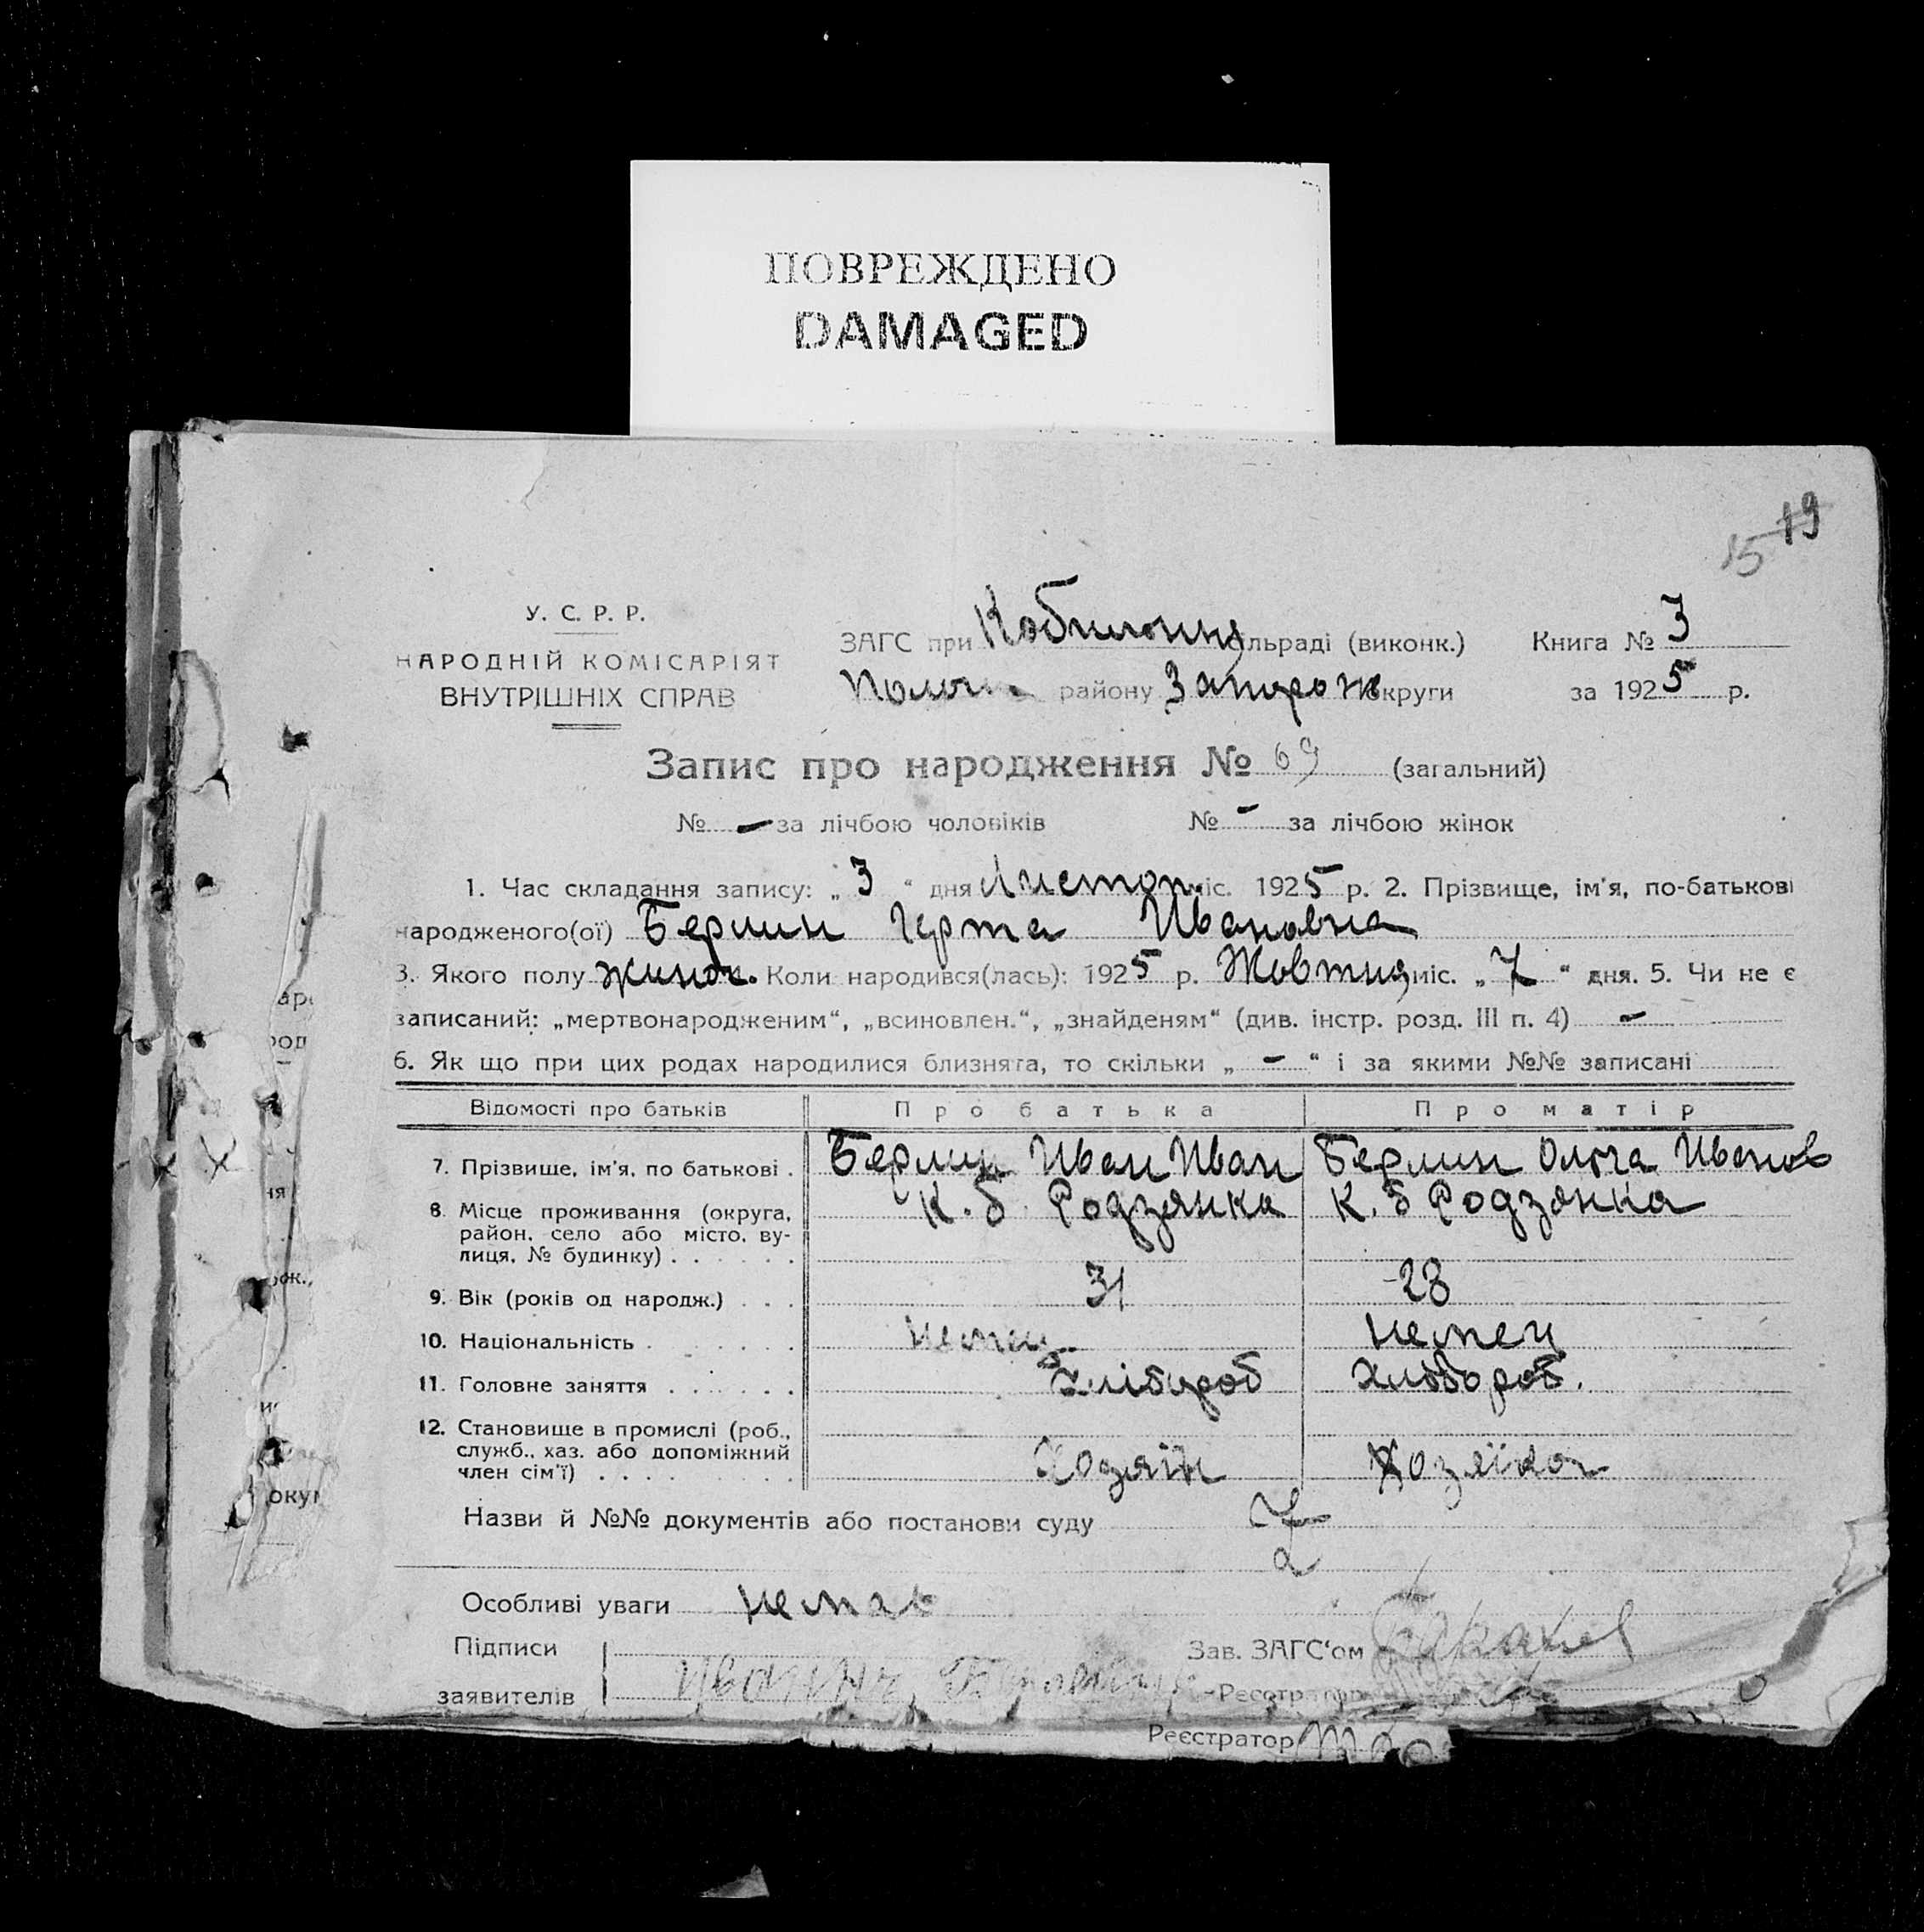 ПОВРЕЖДЕНО
DAMAGED
19
15
У. С. Р. Р.
НАРОДНІЙ КОМІСАРІЯТ
ВНУТРІШНІХ СПРАВ
ЗАГС при сільраді (виконк.) Книга № 3
району Запорож округи за 1925 р.
Запис про народження № 69 (загальний)
№ - за лічбою чоловіків № - за лічбою жінок
1. Час складання запису: „3“ дня Листоп. міс. 1925 р. 2. Прізвище, ім'я, по-батькові
народженого(ої) Берлин Герта Ивановна
3. Якого полу жиноч. Коли народився(лась): 1925 р. Жовтня міс. „7“ дня. 5. Чи не є
записаний: „мертвонародженим“, „всиновлен.“, „знайденям“ (див. інстр. розд. III п. 4) -
6. Як що при цих родах народилися близнята, то скільки „-“ і за якими №№ записані
Відомості про батьків Про батька Про матір
7. Прізвище, ім'я, по батькові . Берлин Иван Иван Берлин Ольга Иванов
8. Місце проживання (округа, К. б. Родзянка К. б Родзянка
район, село або місто, ву-
лиця, № будинку) . . . . . .
9. Вік (років од народж.) . . . 31 28
10. Національність . . . . . . немец немец
11. Головне заняття . . . . . . хлібороб хлібороб.
12. Становище в промислі (роб.,
служб., хаз. або допоміжний Хозяїн Хозяїка
член сім'ї) . . . . . . . .
Назви й №№ документів або постанови суду
Особливі уваги немає
Підписи Зав. ЗАГС'ом
заявителів Реєстратор
Реєстратор
ар
род
ня
рож.,
окум